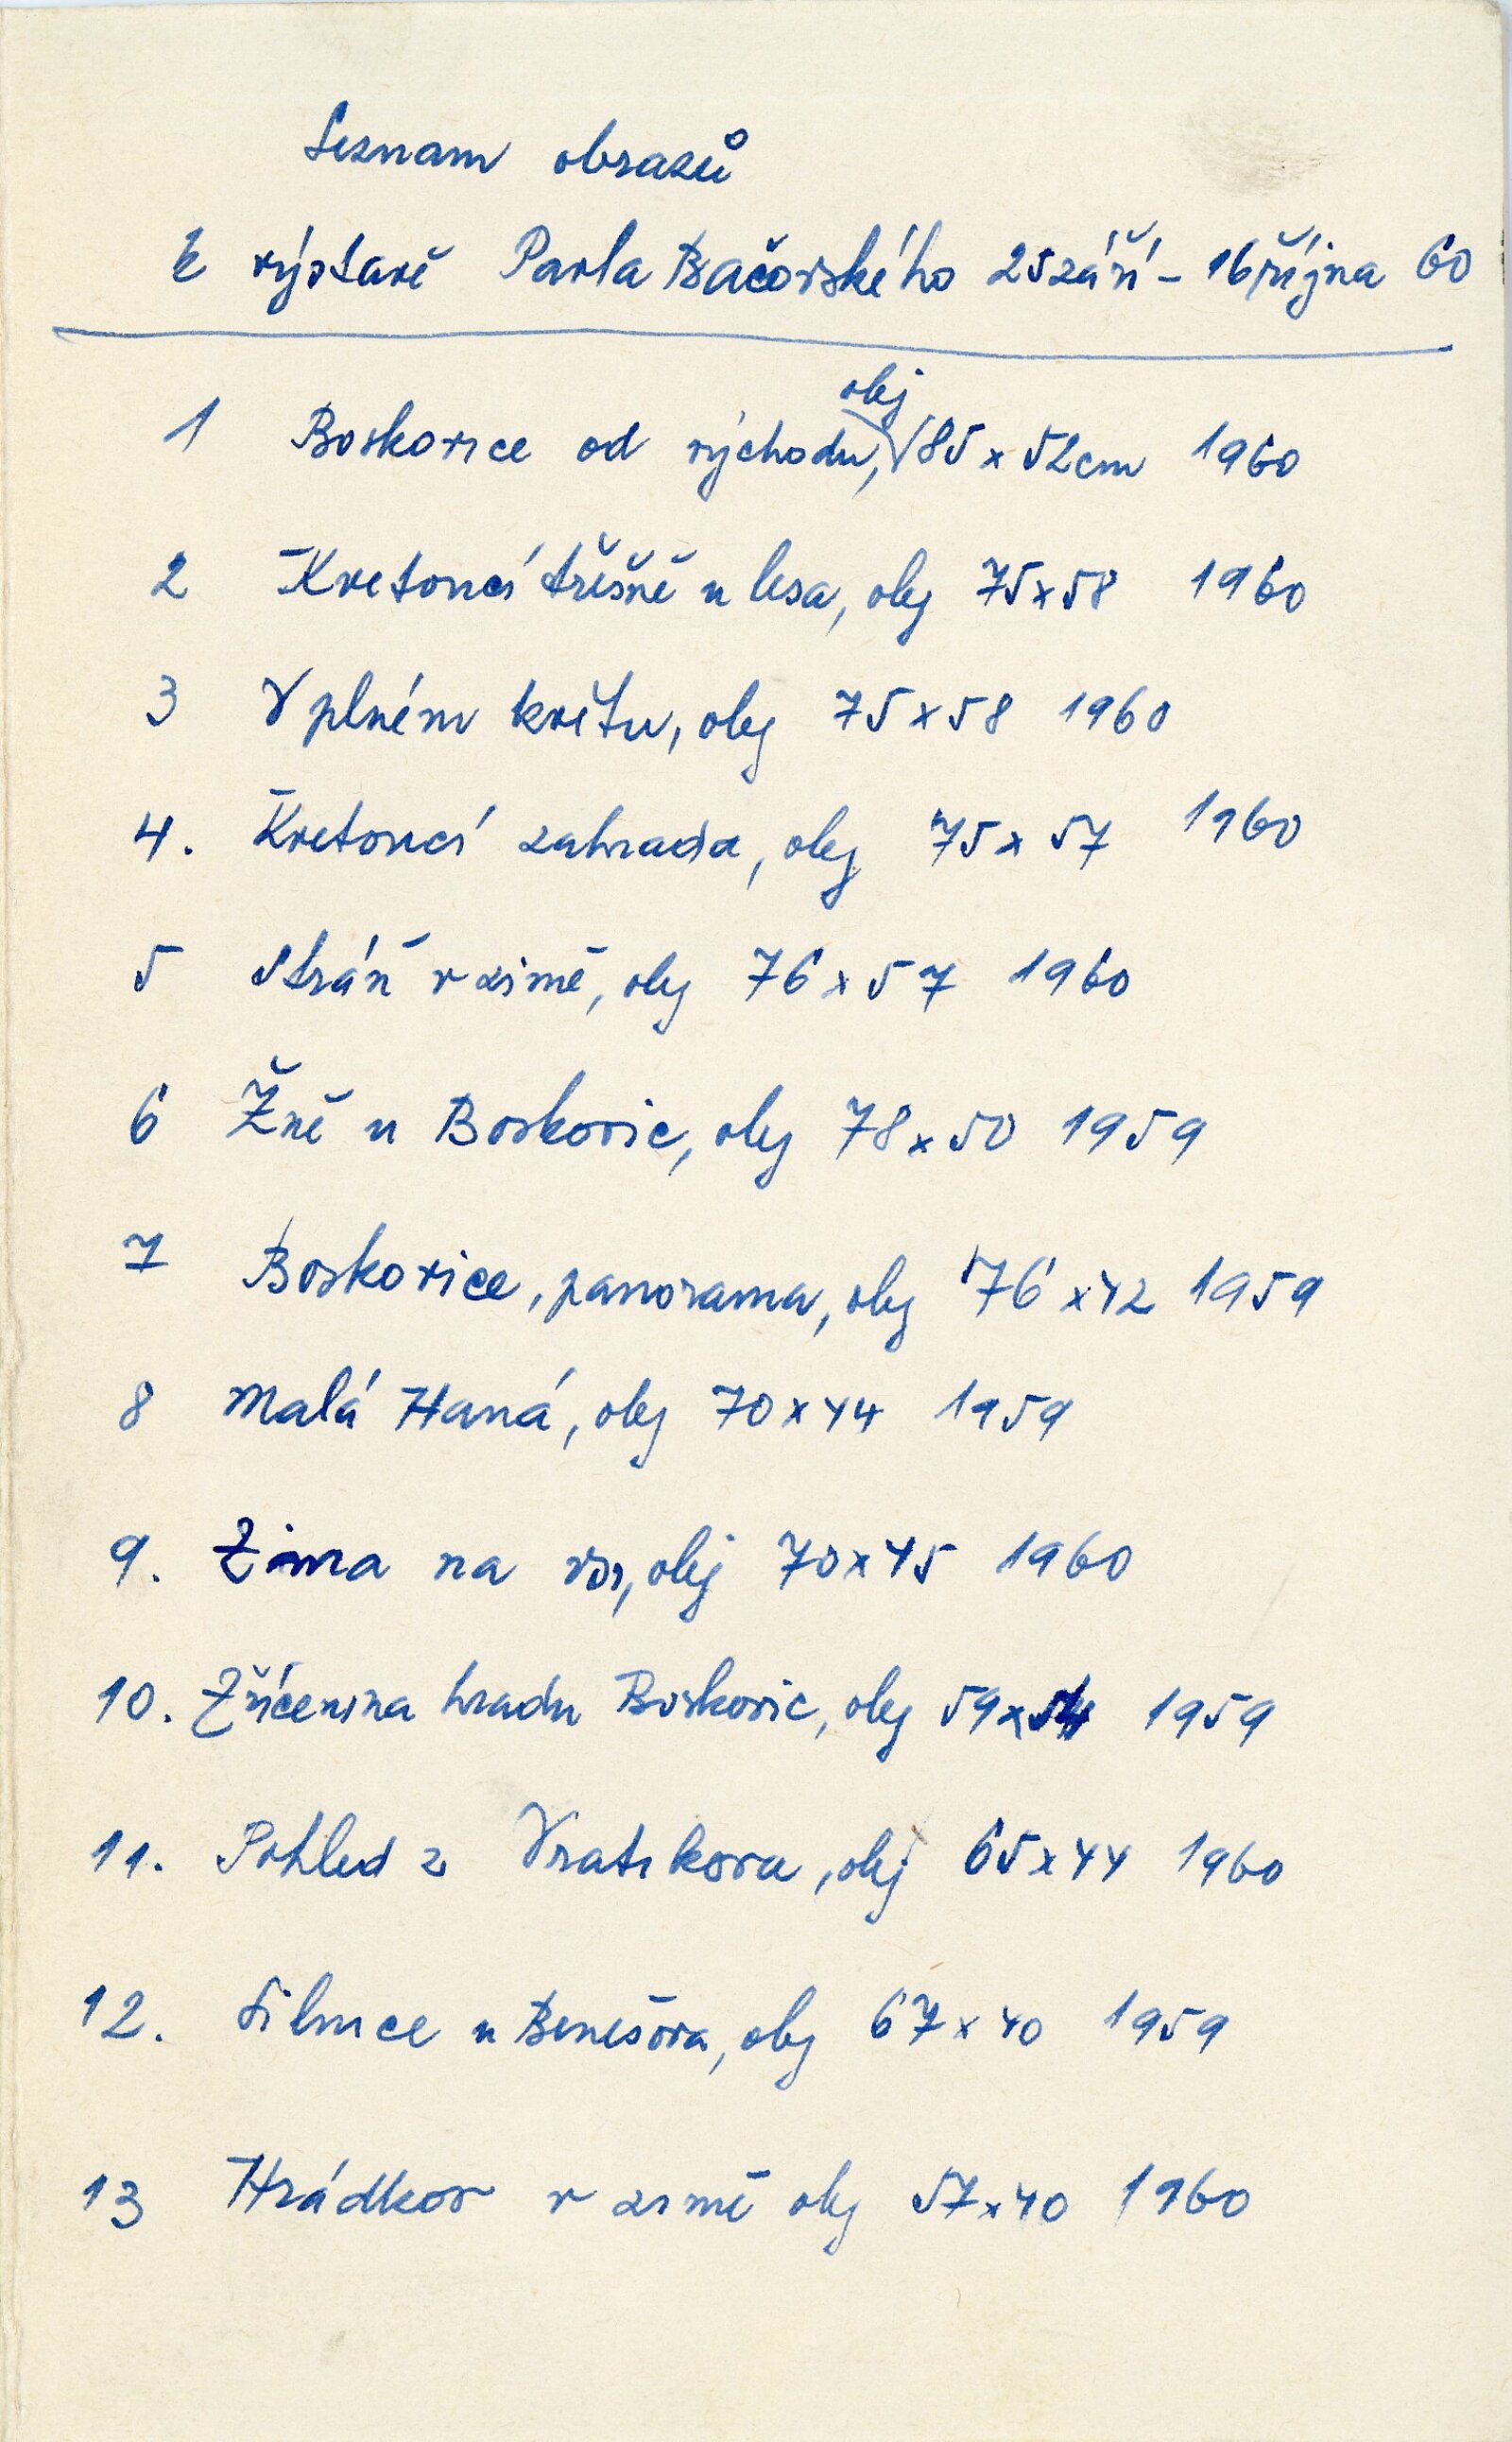 Seznam obrazů
k výstavě Pavla Bačovského 25 září - 16 října 60
1 Boskovice od východu, olej 85 x 52cm 1960
2 Kvetoucí třešně u lesa, olej 75x58 1960
3 V plném květu, olej 75 x 58 1960
4. Kvetoucí zahrada, olej 75 x 57 1960
5 Stráň v zimě, olej 76 x 57 1960
6 Žně u Boskovic, olej 78 x 50 1959
7 Boskovice, panorama, olej 76 x 42 1959
8 Malá Haná, olej 70 x 44 1959
9. Zima na vsi, olej 70 x 45 1960
10. Zřícenina hradu Boskovic, olej 59 x 54 1959
11. Pohled z Vratíkova, olej 65 x 44 1960
12. Silnice u Benešova, olej 67 x 40 1959
13 Hrádkov v zimě olej 57 x 40 1960